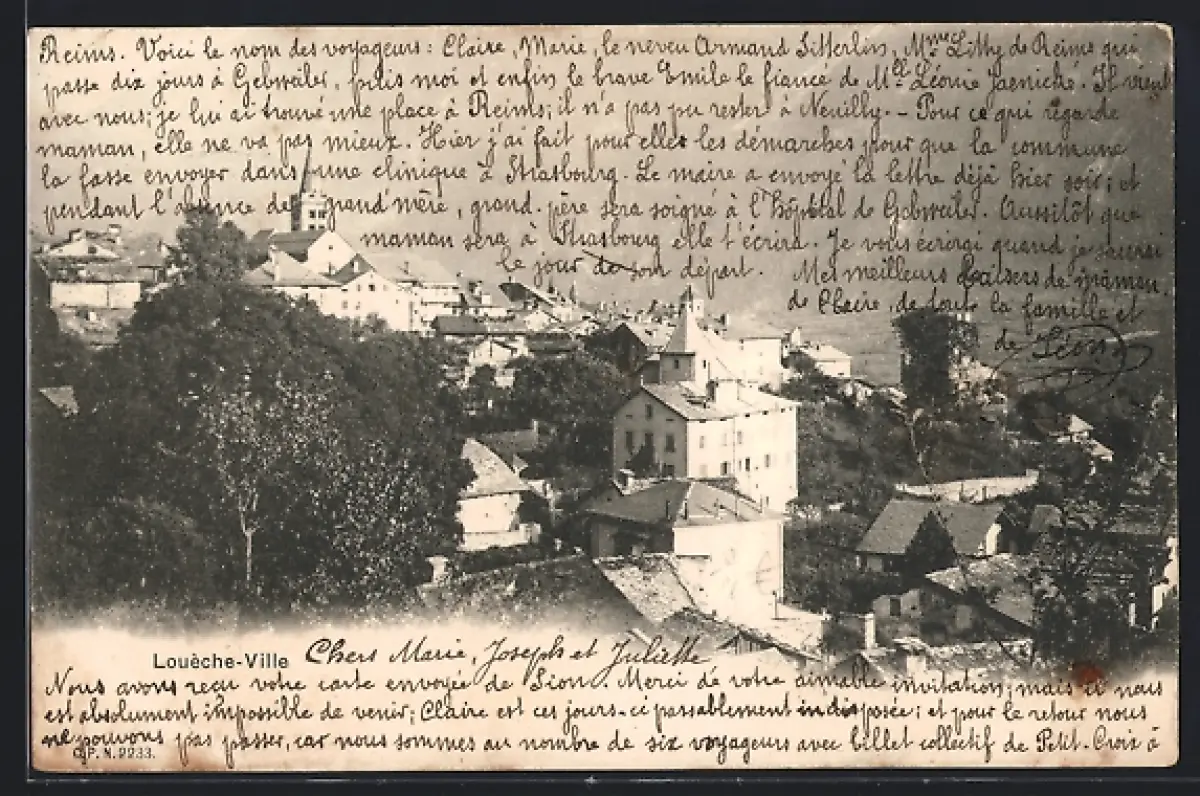 Louèche-Ville
Chers Marie, Joseph et Juliette
Nous avons reçu votre carte envoyée de Sion. Merci de votre aimable invitation; mais il nous
est absolument impossible de venir; Claire est ces jours-ci passablement indisposée; et pour le retour nous
ne pouvons pas passer, car nous sommes au nombre de six voyageurs avec billet collectif de Petit-Croix à
N. 9233.
Reims. Voici le nom des voyageurs: Claire, Marie, le neveu Armand Sitterlin, Mme Litty de Reims qui
passe dix jours à Gebweiler, puis moi et enfin le brave Emile le fiancé de Mlle Léonie Jaeniché. Il vient
avec nous; je lui ai trouvé une place à Reims; il n'a pas pu rester à Neuilly. - Pour ce qui regarde
maman, elle ne va pas mieux. Hier j'ai fait pour elle les démarches pour que la commune
la fasse envoyer dans une clinique à Strasbourg. Le maire a envoyé la lettre déjà hier soir; et
pendant l'absence de grand'mère, grand-père sera soigné à l'hôpital de Gebweiler. Aussitôt que
maman sera à Strasbourg elle t'écrira. Je vous écrirai quand je saurai
le jour de son départ. Mes meilleurs baisers de maman,
de Claire, de toute la famille et
de Léon